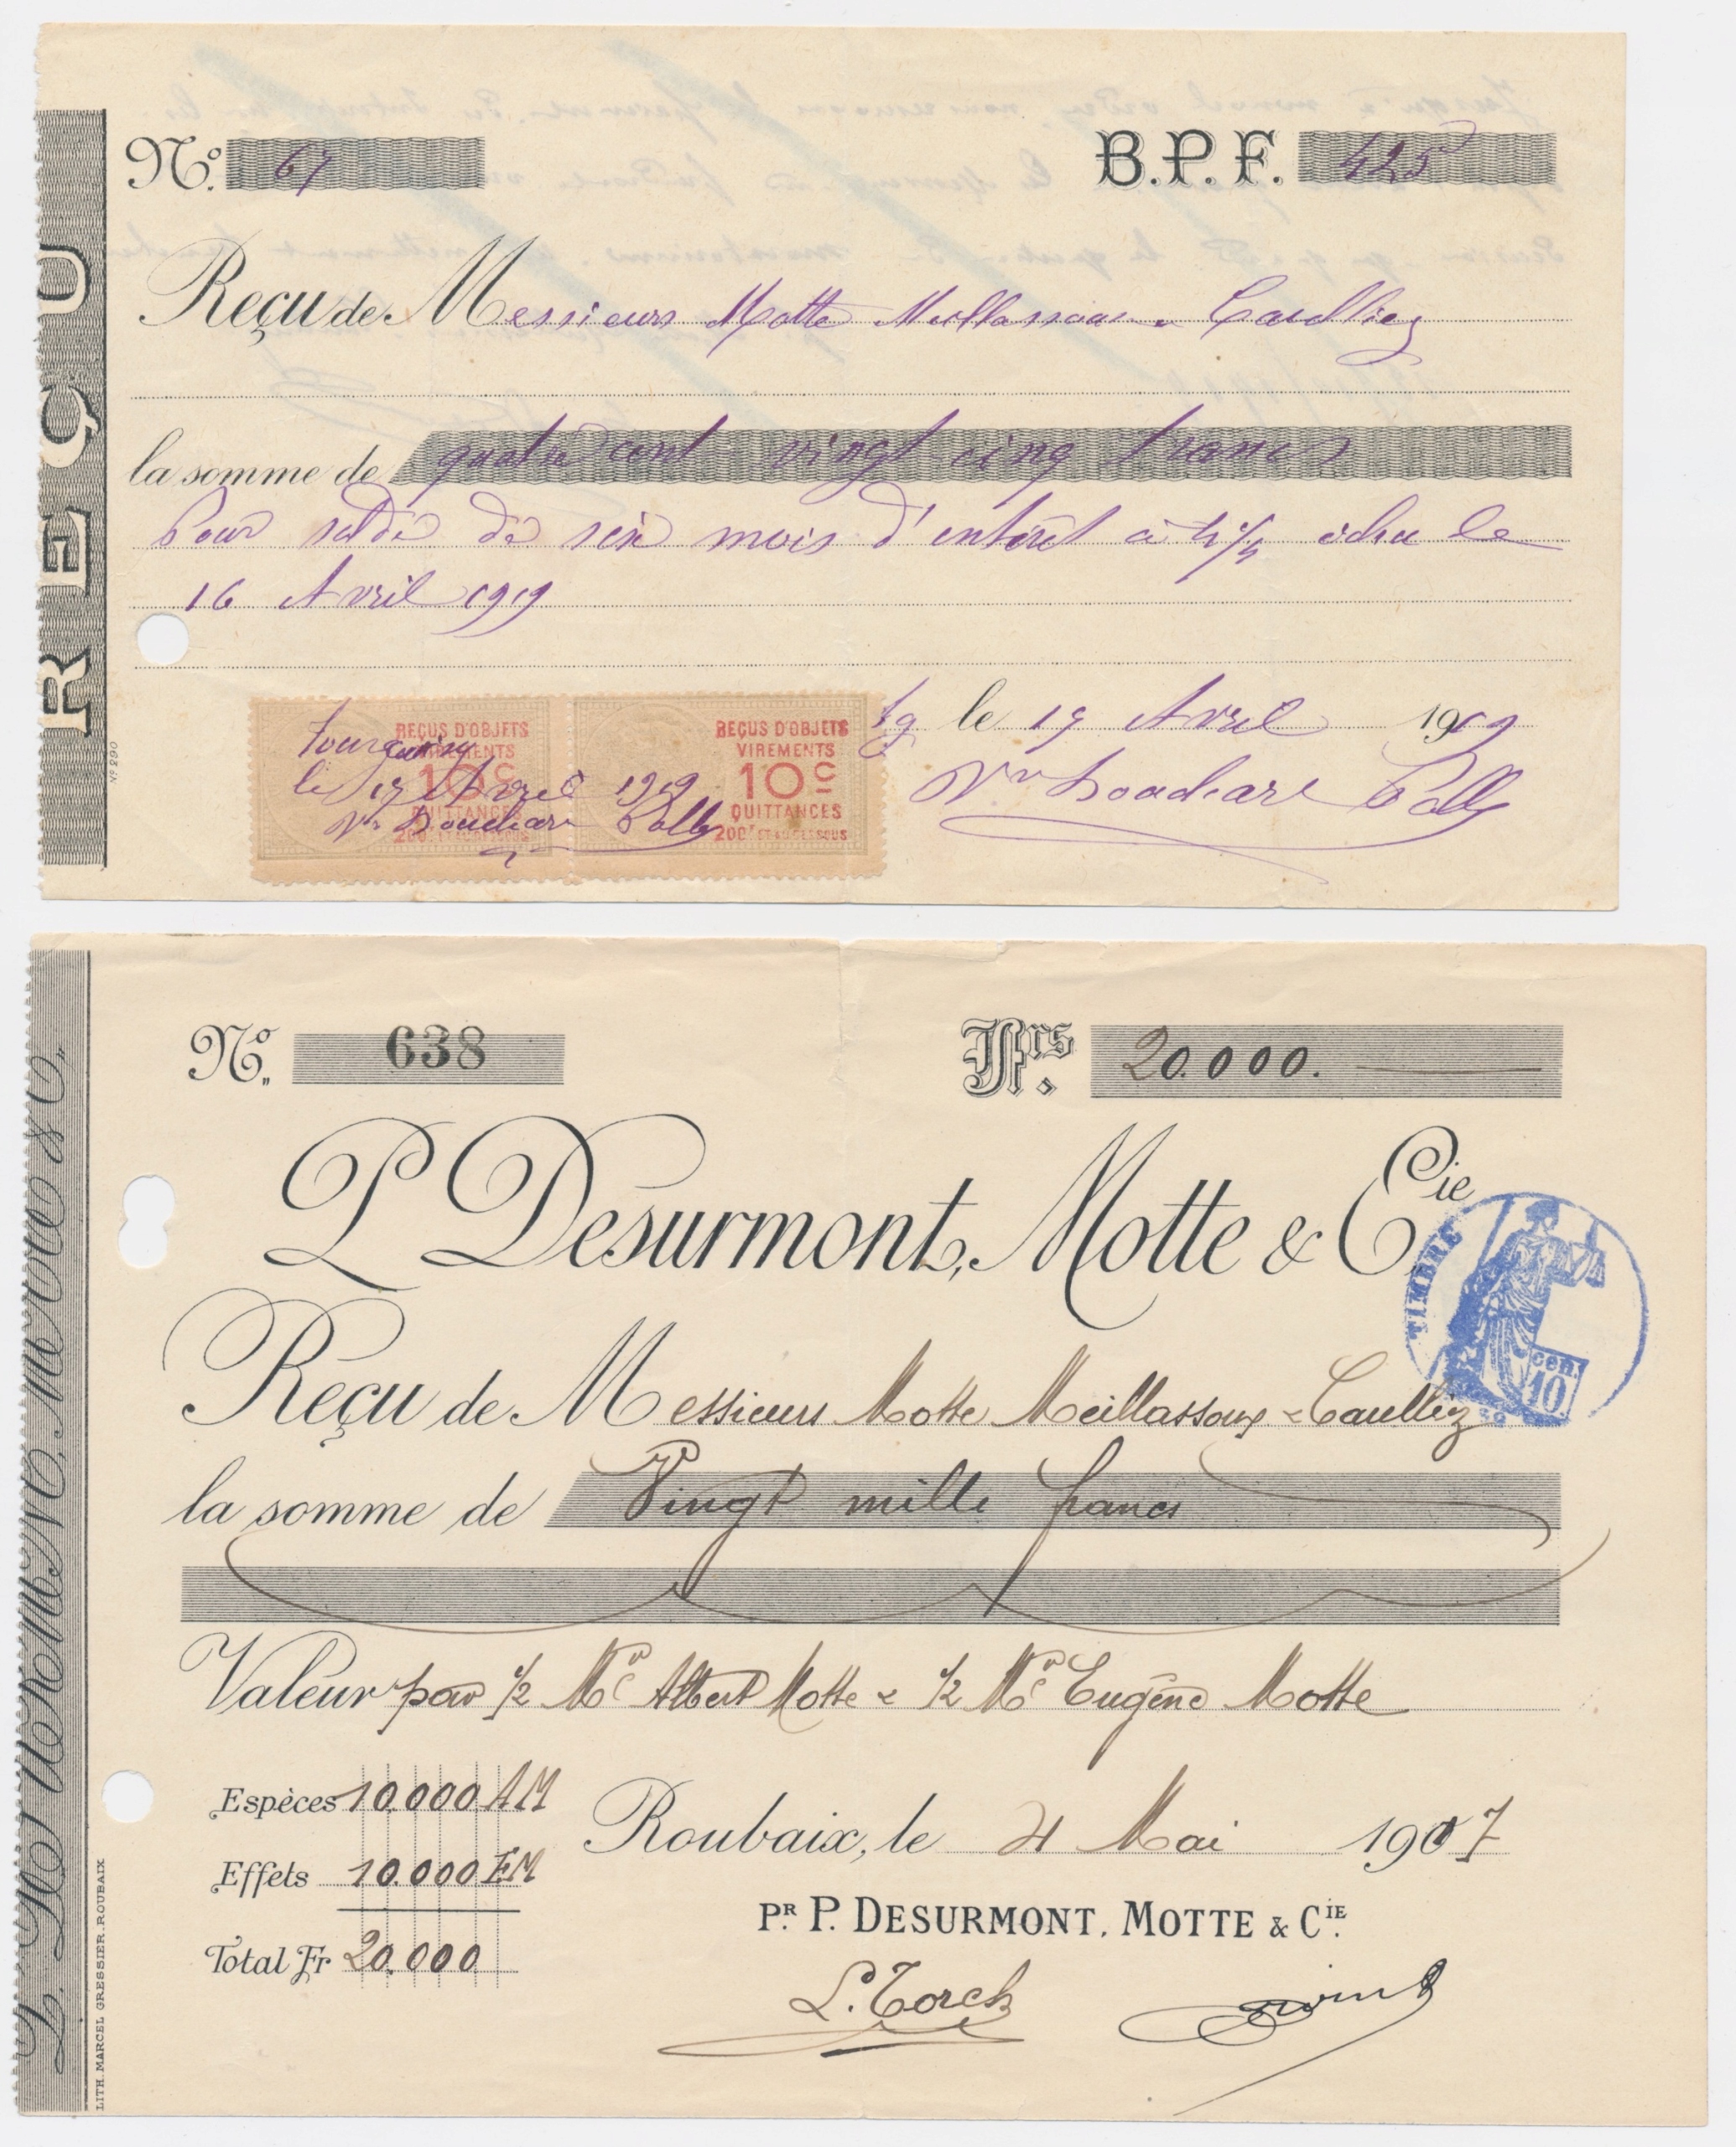 REÇU
Nº. 67 B.P.F. 425
Reçu de Messieurs Motte Meillassoux Caulliez
la somme de quatre cent vingt cinq francs
Pour solde de six mois d'interêt à échu le
16 Avril 1919
Tg le 17 Avril 1919
Vve Douchare Polly
REÇUS D'OBJETS
VIREMENTS
10c
QUITTANCES
200f ET AU DESSOUS
REÇUS D'OBJETS
VIREMENTS
10c
QUITTANCES
200f ET AU DESSOUS
Tourcoing
le 17 Avril 1919
Vve Douchare Polly
Nº 290
Nº. 638 Frs. 20.000.
P. Desurmont, Motte & Cie
TIMBRE
10 cen.
Reçu de Messieurs Motte Meillassoux & Caulliez
la somme de Vingt mille francs
Valeur pour 1/2 Mr Albert Motte & 1/2 Mr Eugène Motte
Espèces 10.000 AM
Roubaix, le 4 Mai 1907
Effets 10.000 EM
Pr. P. DESURMONT, MOTTE & CIE.
Total Fr 20.000
L. Torck
LITH. MARCEL GRESSIER. ROUBAIX